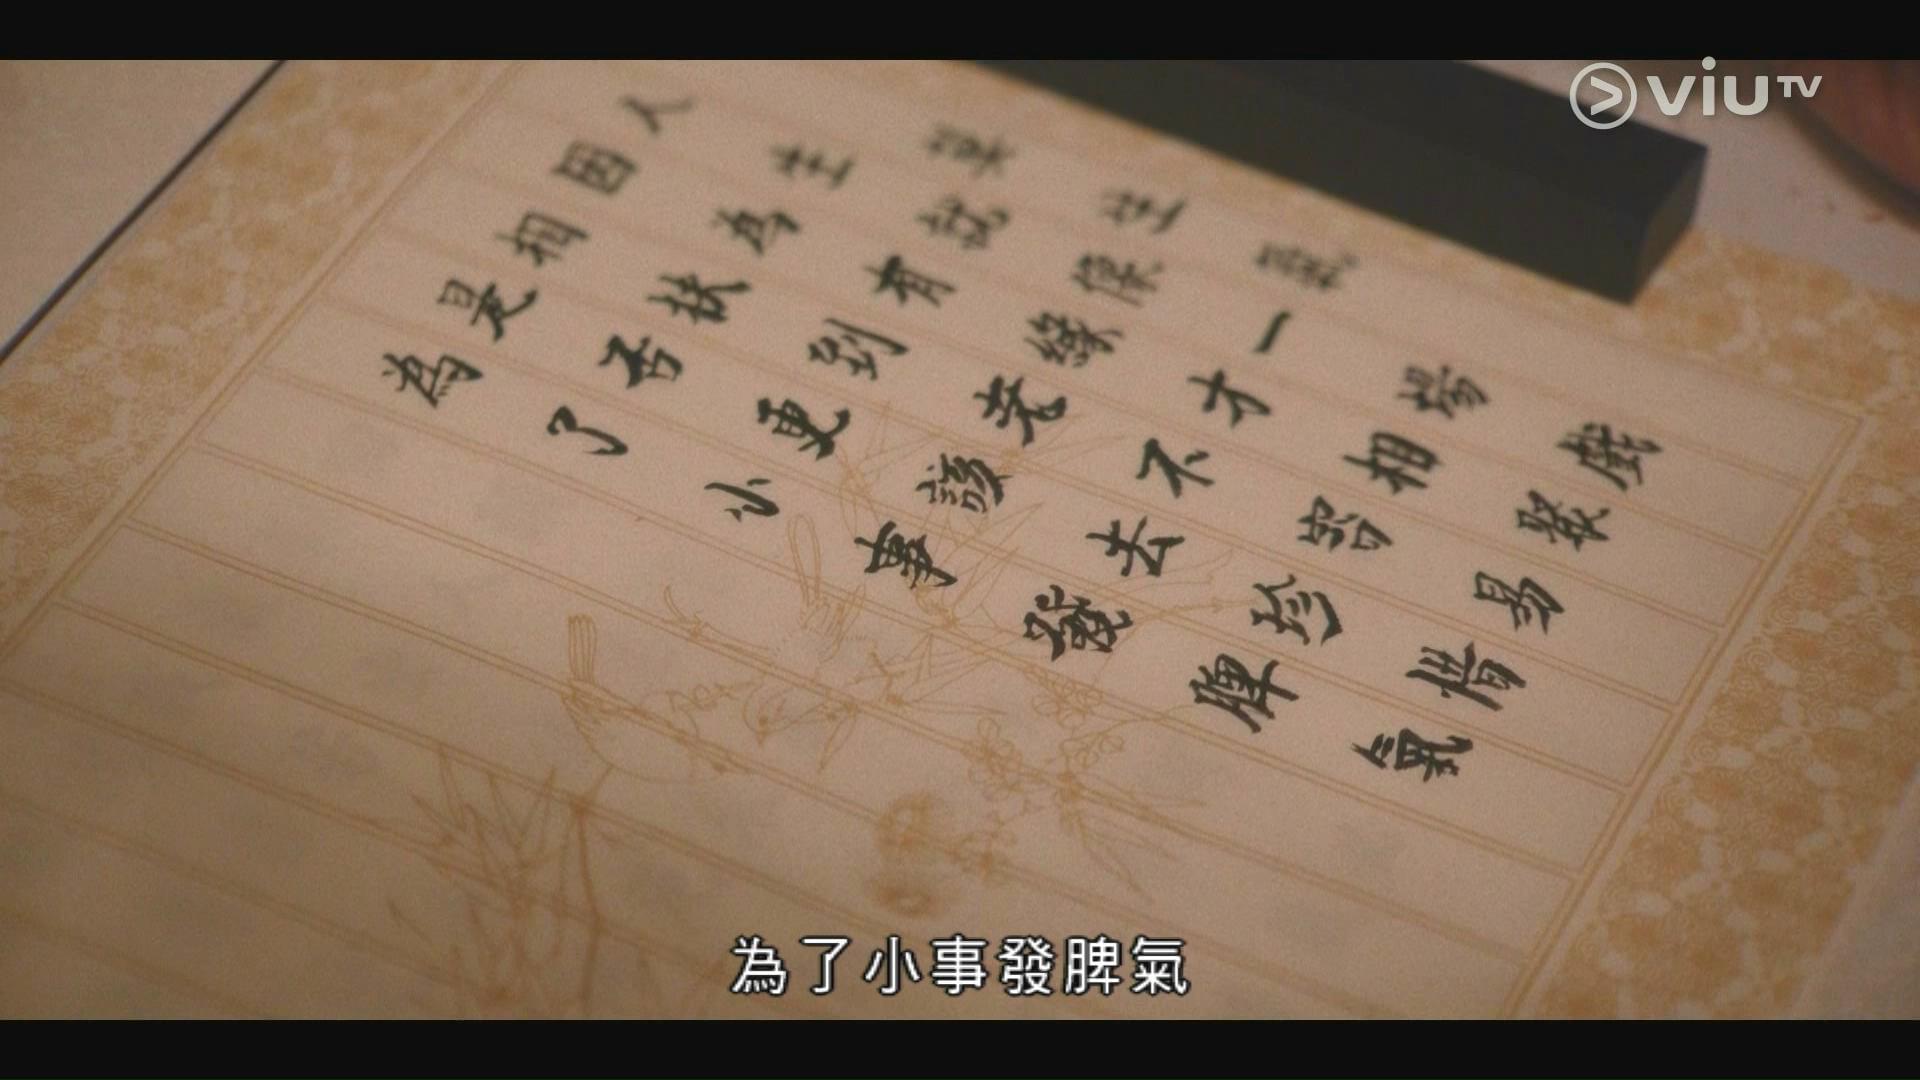 莫生氣
人生就像一場戲
因為有緣才相聚
相扶到老不容易
是否更該去珍惜
為了小事發脾氣
為了小事發脾氣
viuTV